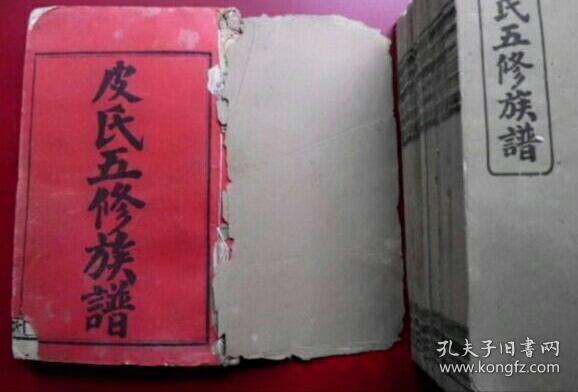 皮氏五修族譜
氏五修族譜
孔夫子旧书网
www.kongfz.com